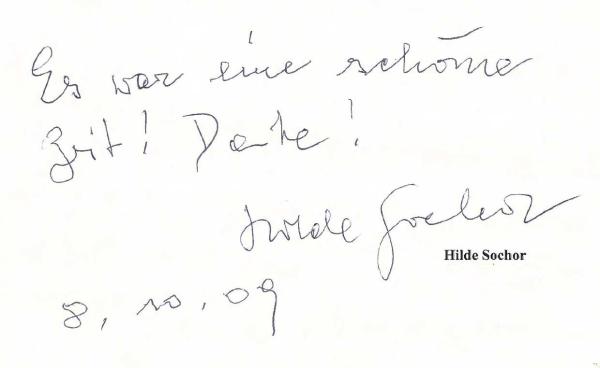 Es war eine schöne
Zeit! Danke!
Hilde Sochor
Hilde Sochor
8. 10. 09